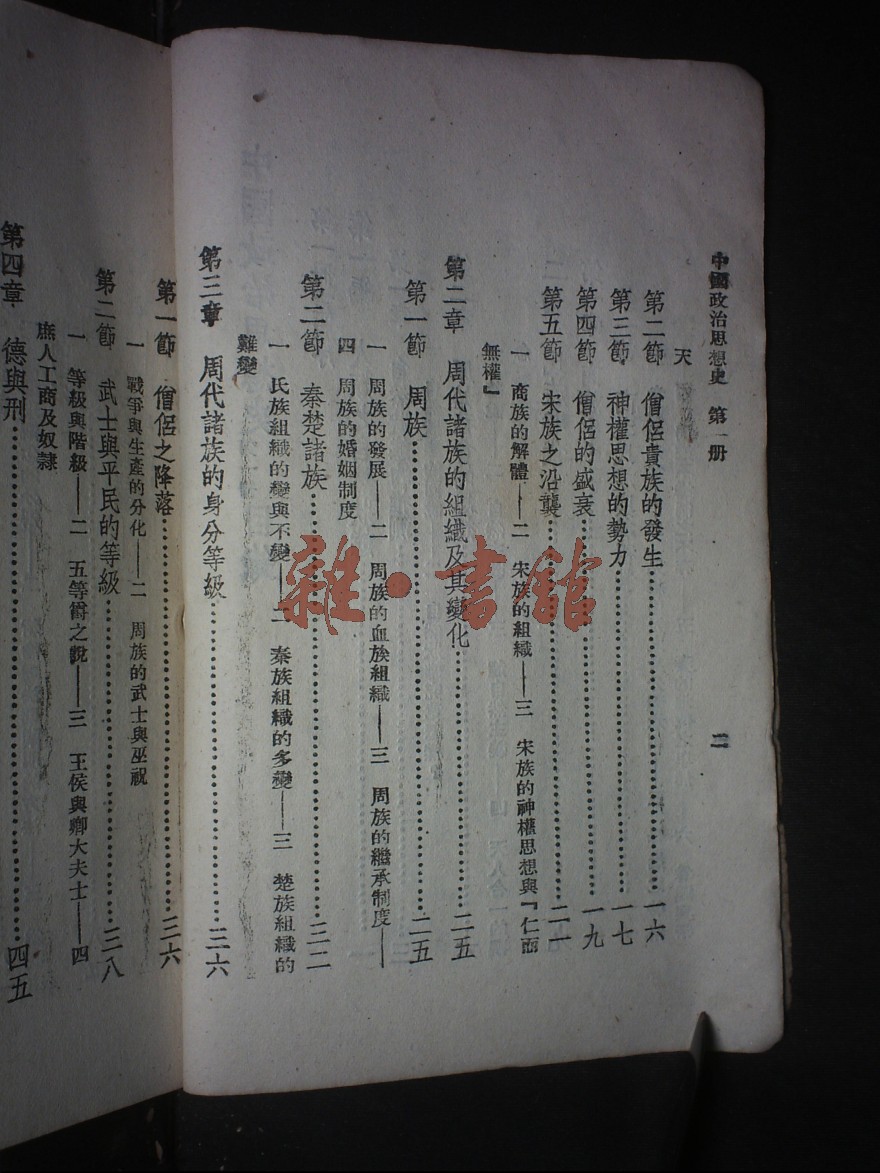 中國政治思想史 第一册 二
天
第二節 僧侶貴族的發生……一六
第三節 神權思想的勢力……一七
第四節 僧侶的盛衰……一九
第五節 宋族之沿襲……二一
一 商族的解體——二 宋族的組織——三 宋族的神權思想與『仁而
無權』
第二章 周代諸族的組織及其變化……二五
第一節 周族……二五
一 周族的發展——二 周族的血族組織——三 周族的繼承制度——
四 周族的婚姻制度
第二節 秦楚諸族……三二
一 氏族組織的變與不變——二 秦族組織的多變——三 楚族組織的
難變
第三章 周代諸族的身分等級……三六
第一節 僧侶之降落……三六
一 戰爭與生產的分化——二 周族的武士與巫祝
第二節 武士與平民的等級……三八
一 等級與階級——二 五等爵之說——三 王侯與卿大夫士——四
庶人工商及奴隸
第四章 德與刑……四五
雜·書館